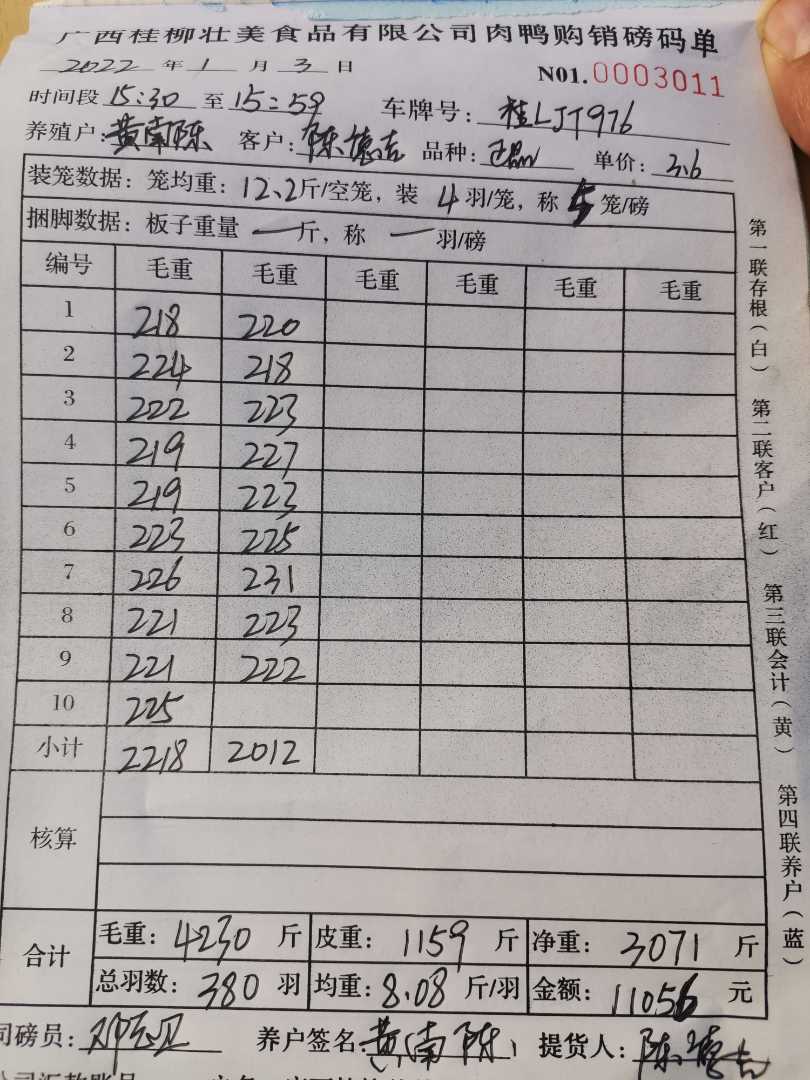 广西桂柳壮美食品有限公司肉鸭购销磅码单
2022 年 1 月 3 日 N01. 0003011
时间段 15:30 至 15:59 车牌号: 桂LJT976
养殖户: 黄南陈 客户: 陈德吉 品种: 单价: 3.6
装笼数据: 笼均重: 12.2 斤/空笼, 装 4 羽/笼, 称 5 笼/磅
捆脚数据: 板子重量 一 斤, 称 一 羽/磅
编号 毛重 毛重 毛重 毛重 毛重 毛重
1 218 220
2 224 218
3 222 223
4 219 227
5 219 223
6 223 225
7 226 231
8 221 223
9 221 222
10 225
小计 2218 2012
核算
合计 毛重: 4230 斤 皮重: 1159 斤 净重: 3071 斤
总羽数: 380 羽 均重: 8.08 斤/羽 金额: 11056 元
司磅员: 养户签名: 黄南陈 提货人: 陈德吉
第一联存根(白) 第二联客户(红) 第三联会计(黄) 第四联养户(蓝)